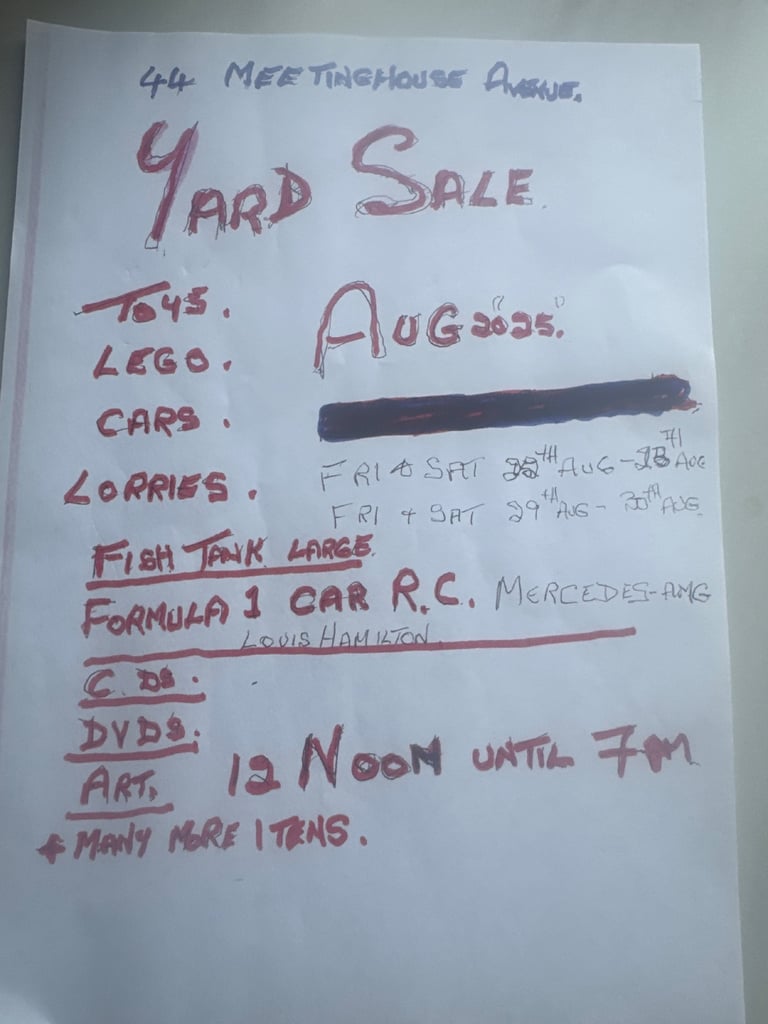 44 MEETINGHOUSE AVENUE.
YARD SALE.
TOYS.
AUG "2025".
LEGO.
CARS.
LORRIES.
FRI & SAT 22TH AUG - 23TH AUG
FRI + SAT 29TH AUG - 30TH AUG.
FISH TANK LARGE.
FORMULA 1 CAR R.C. MERCEDES-AMG
LOUIS HAMILTON.
C.DS.
DVDS.
ART.
12 NOON UNTIL 7PM
+ MANY MORE ITENS.